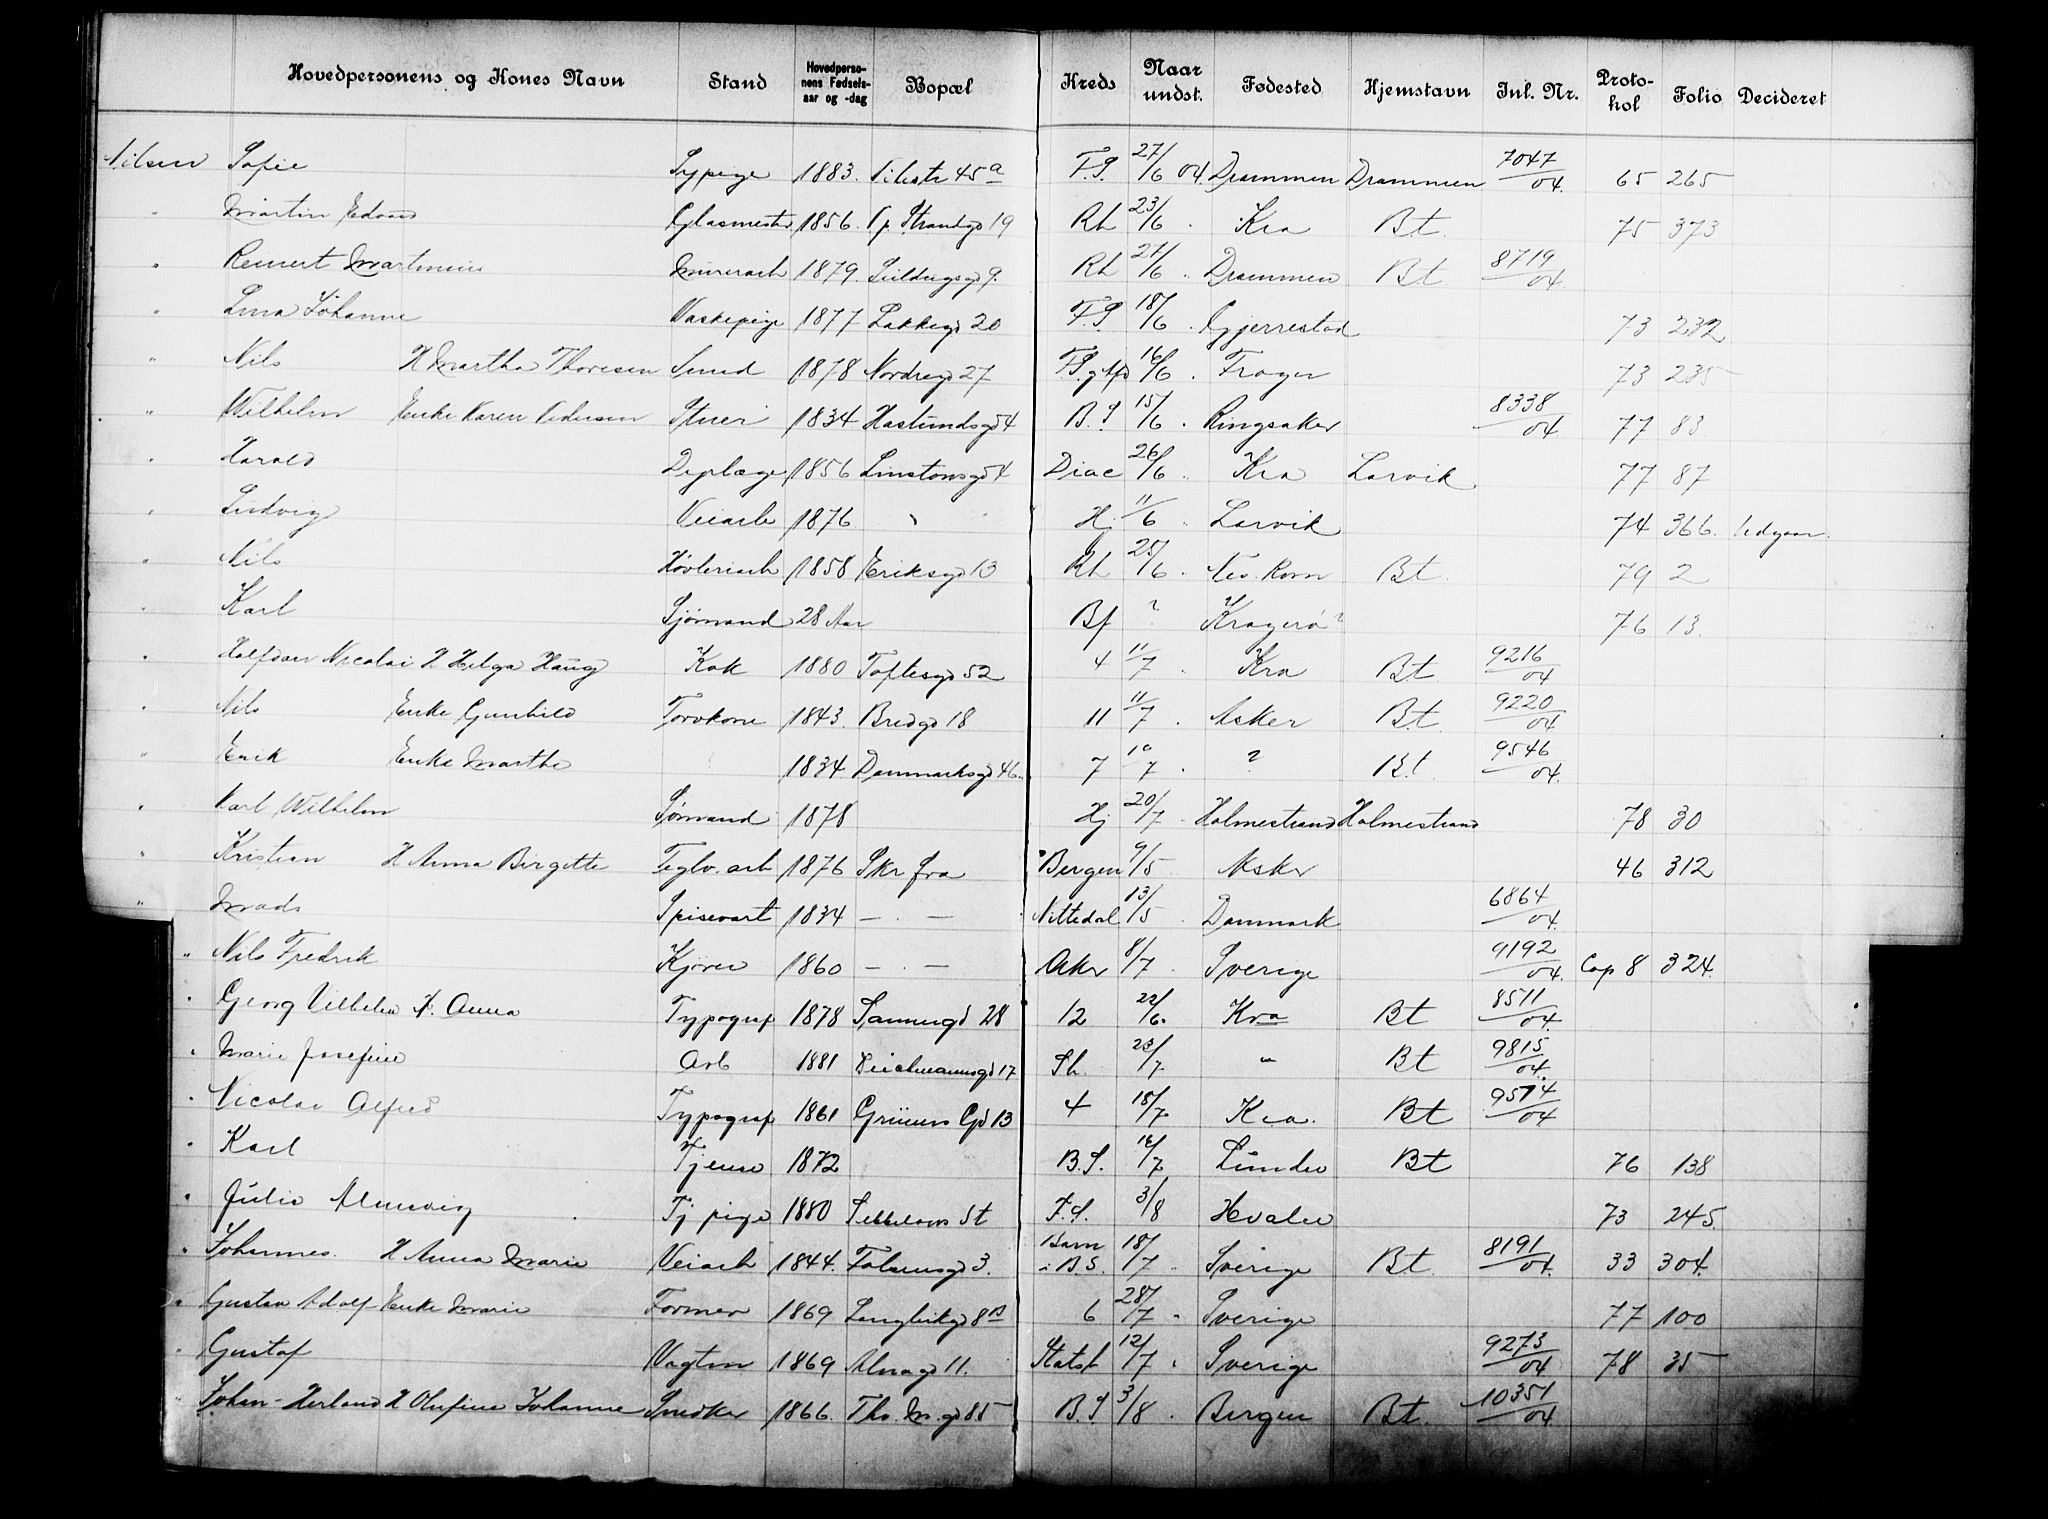 Hovedpersonens og Kones Navn Stand Hovedpersonens Fødselsaar og -dag Bopæl Kreds Naar undst. Fødested Hjemstavn Inl. Nr. Protokol Folio Decideret
Nilsen Sofie Sypige 1883. Pilestr 45a F.S. 27/6 04. Drammen Drammen 7047/04. 65 265
" Martin Edvard Glasmester 1856. Strandgd 19 Rh 23/6 . Kra Bt. 75 373
" Reinert Martinius Murerarb 1879. 9. Rh 21/6 . Drammen Bt 8719/04.
" Lina Johanne Vaskepige 1877 Lakkegd 20 F.S 18/6 . Gjerrestad 73 232
" Nils H Martha Thoresen Smed 1878 Nordregd 27 F.S. 16/6 . Frogn 73 235
" Wilhelm Enke Karen Pedersen 1834 4 B.S 15/6 . Ringsaker 8338/04 77 83
" Harald Dyrlæge 1856 Linstowsgd 4 Diac 26/6 . Kra Larvik 77 87
" Ludvig Veiarb 1876 " Hj 11/6 . Larvik 74 366. Udgaar.
" Nils Høvleriarb 1858 Eriksgd 13 Rh 25/6 . Nes. Rom Bt. 79 2
" Karl Sjømand 28 Aar Bf ? Kragerø ? 76 13.
" Halfdan Nicolai H Helga Haug Kok 1880 Toftesgd 52 4 11/7 . Kra Bt 9216/04
" Nils Enke Gunhild Torvkone 1843. Bredgd 18 11 11/7 . Asker Bt. 9220/04
" Erik Enke Marthe 1834 Danmarksgd 46. 7 10/7 . ? Bt. 9546/04.
" Karl Wilhelm Sømand 1878 Hj 20/7 . Holmestrand Holmestrand 78 30
" Kristian H Anna Birgitte Teglv. arb 1876 Skr fra Bergen 9/5 . Asker 46 312
" Mads Spisevært 1834 — . — Nittedal 13/5 . Danmark 6864/04.
" Nils Fredrik Kjører 1860 — . — Aker 8/7 . Sverige 9192/04. Cop 8 324.
" Georg Vilhelm H. Anna Typograf 1878 Sannergd 28 12 22/6. Kra Bt 8511/04.
" Marie Josefine Arb 1881 Deichmannsgd 17 Sh. 23/7 " Bt 9815/04.
" Nicolai Alfred Typograf 1861 Grüners Gd 13 4 18/7. Kra. Bt 9574/04
" Karl Tjener 1872 B.S. 16/7 Lunder Bt 76 138
" Julie Tj pige 1880 St F.S. 3/8 Hvaler 73 245
" Johannes. H Anna Marie Veiarb 1844. 3. Barn i B.S. 18/7 . Sverige Bt. 8191/04. 33 304.
" Gustav Adolf Enke Marie Former 1869 Langlikgd 8B 6 28/7 . Sverige 77 100
" Gustaf Vagtm 1869 Alnagd 11. Statsb 12/7 . Sverige 9273/04 78 35
" Johan - Herland H Olufine Johanne Snedker 1866. Ths. M. gd 85 B.S 3/8 . Bergen Bt. 10351/04.